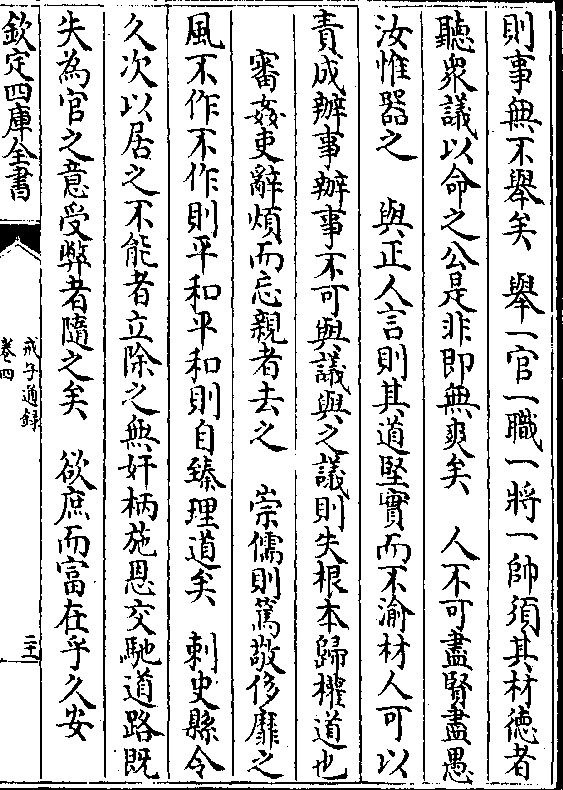 則事無不舉矣　舉一官一職一將一帥須其材德者
聽衆議以命之公是非即無爽矣　人不可盡賢盡愚
汝惟器之　與正人言則其道堅實而不渝材人可以
責成辦事辦事不可與議與之議則失根本歸權道也
審姦吏辭煩而忘親者去之　崇儒則篤敬侈靡之
風不作不作則平和平和則自臻理道矣　刺史縣令
久次以居之不能者立除之無奸柄施恩交馳道路既
失為官之意受弊者隨之矣　欲庶而富在乎久安
欽定四庫全書
戒子通錄
卷四
二十